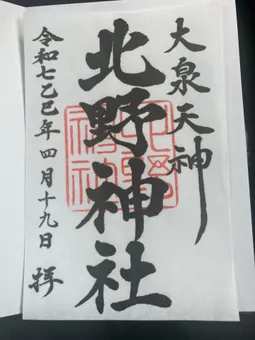 大泉天神
北野神社
令和七乙巳年 四月十九日 拜